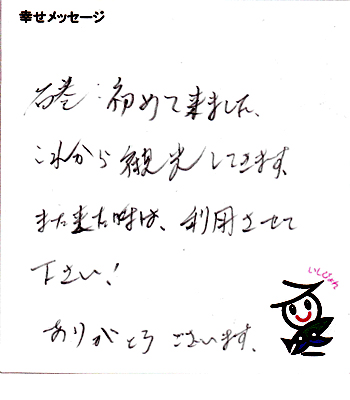 幸せメッセージ
石巻:初めて来ました、
これから観光してきます、
また来た時は、利用させて
下さい!
ありがとうございます、
いしぴょん